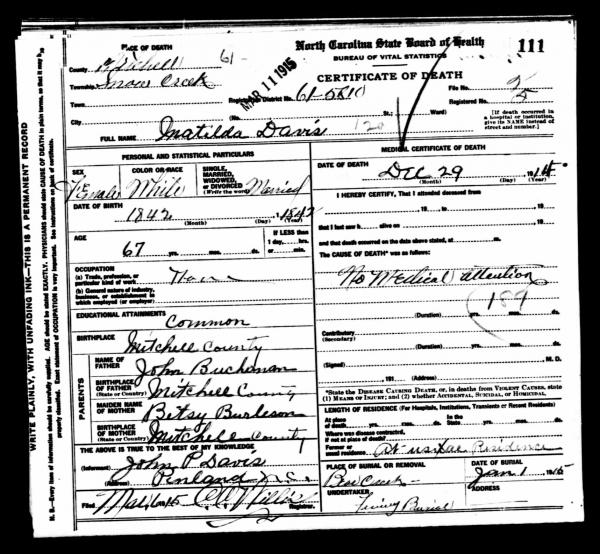 PLACE OF DEATH
County Mitchell 61-
Township Snow Creek
Town
City
MAR 11 1915
North Carolina State Board of Health 111
BUREAU OF VITAL STATISTICS
CERTIFICATE OF DEATH
Registration District No. 61-5810
File No.
Registered No. 5
(No. St.; Ward)
[If death occurred in a hospital or institution, give its NAME instead of street and number.]
FULL NAME Matilda Davis
PERSONAL AND STATISTICAL PARTICULARS
SEX Female
COLOR OR RACE White
SINGLE, MARRIED, WIDOWED, or DIVORCED (Write the word) Married
DATE OF BIRTH
1842 1842
(Month) (Day) (Year)
AGE
67 yrs. mos. ds.
If LESS than 1 day, hrs. or min.
OCCUPATION
(a) Trade, profession, or particular kind of work
(b) General nature of industry, business, or establishment in which employed (or employer)
EDUCATIONAL ATTAINMENTS
Common
BIRTHPLACE Mitchell County
PARENTS
NAME OF FATHER John Buchanan
BIRTHPLACE OF FATHER (State or Country) Mitchell County
MAIDEN NAME OF MOTHER Betsy Burleson
BIRTHPLACE OF MOTHER (State or Country) Mitchell County
THE ABOVE IS TRUE TO THE BEST OF MY KNOWLEDGE
(Informant) John P Davis
(Address) Penland N.C.
Filed
Registrar.
MEDICAL CERTIFICATE OF DEATH
DATE OF DEATH
Dec 29 1914
(Month) (Day) (Year)
I HEREBY CERTIFY, That I attended deceased from
19 to 19
that I last saw h alive on 19
and that death occurred on the date above stated, at m.
The CAUSE OF DEATH* was as follows:
No Medical attention
189
(Duration) yrs. mos. ds.
Contributory
(Secondary)
(Duration) yrs. mos. ds.
(Signed) M. D.
191 (Address)
*State the DISEASE CAUSING DEATH, or, in deaths from VIOLENT CAUSES, state (1) MEANS OF INJURY; and (2) whether ACCIDENTAL, SUICIDAL, or HOMICIDAL.
LENGTH OF RESIDENCE (For Hospitals, Institutions, Transients or Recent Residents)
At place of death yrs. mos. ds. In the State yrs. mos. ds.
Where was disease contracted, if not at place of death?
Former or usual residence At usual Residence
PLACE OF BURIAL OR REMOVAL
DATE OF BURIAL
Jan 1 1915
UNDERTAKER
Burial
ADDRESS
WRITE PLAINLY, WITH UNFADING INK—THIS IS A PERMANENT RECORD
N. B.—Every item of information should be carefully supplied. AGE should be stated EXACTLY. PHYSICIANS should state CAUSE OF DEATH in plain terms, so that it may be properly classified. Exact statement of OCCUPATION is very important. See instructions on back of certificate.